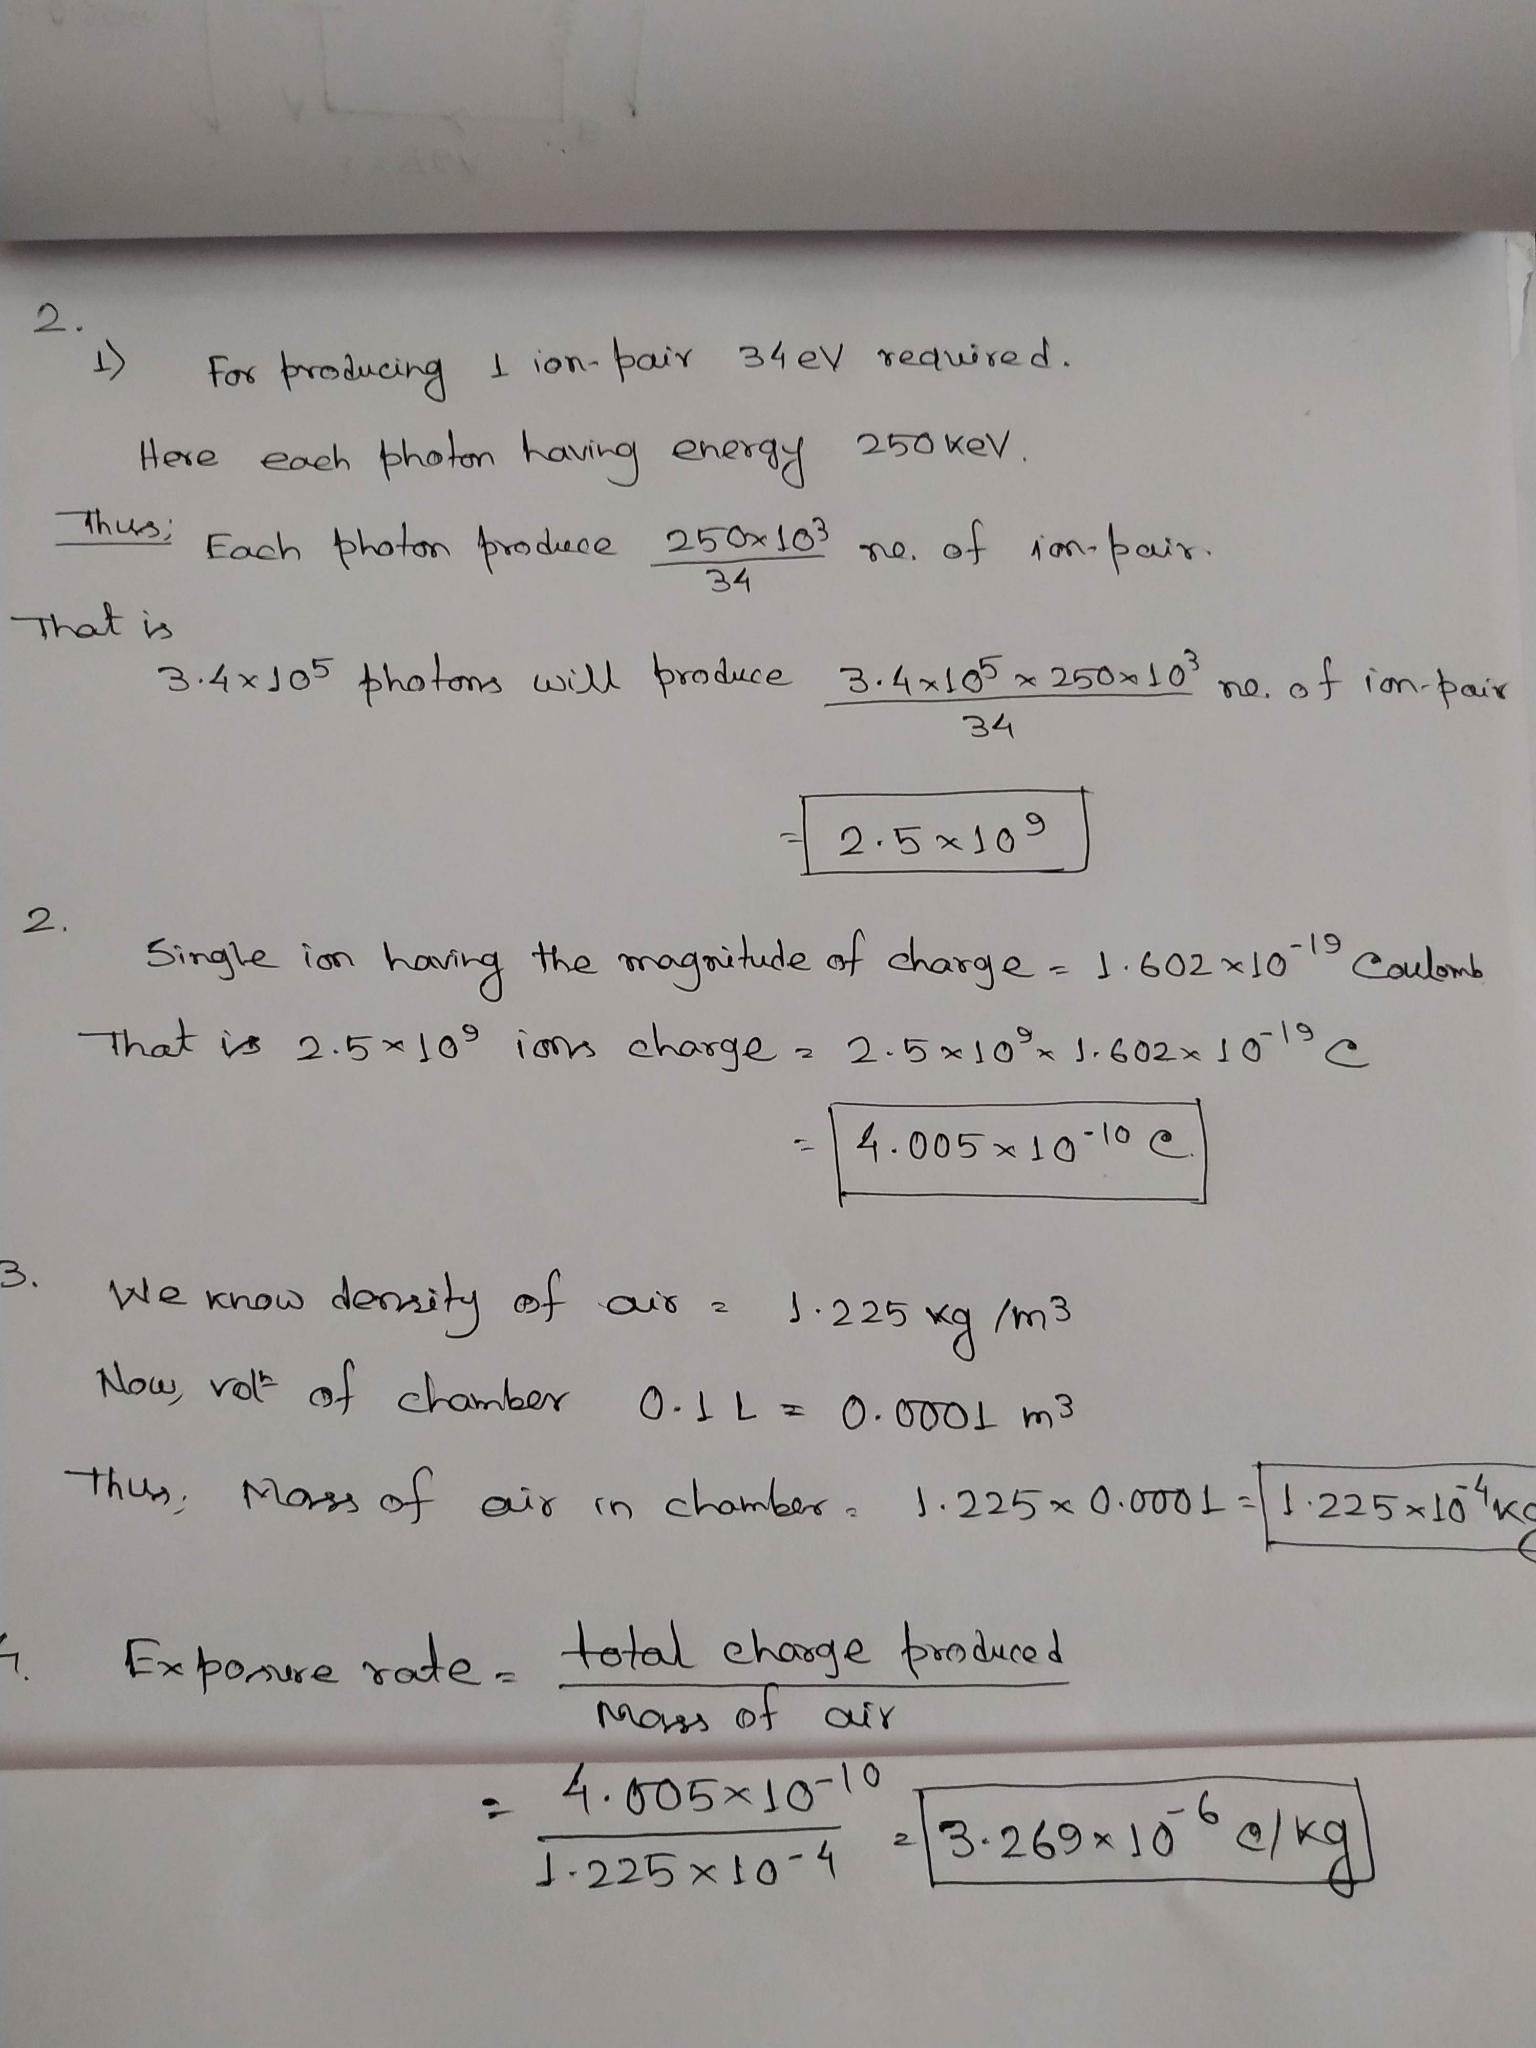 2.
1) For producing 1 ion-pair 34eV required.
Here each photon having energy 250 keV.
Thus; Each photon produce 250×10³ / 34 no. of ion-pair.
That is
3.4×10⁵ photons will produce 3.4×10⁵ × 250×10³ / 34 no. of ion-pair
= 2.5×10⁹
2. Single ion having the magnitude of charge = 1.602×10⁻¹⁹ Coulomb
That is 2.5×10⁹ ions charge = 2.5×10⁹ × 1.602×10⁻¹⁹ C
= 4.005×10⁻¹⁰ C.
3. We know density of air = 1.225 kg/m³
Now, volⁿ of chamber 0.1 L = 0.0001 m³
Thus; Mass of air in chamber = 1.225×0.0001 = 1.225×10⁻⁴ kg
4. Exposure rate = total charge produced / Mass of air
= 4.005×10⁻¹⁰ / 1.225×10⁻⁴ = 3.269×10⁻⁶ C/kg